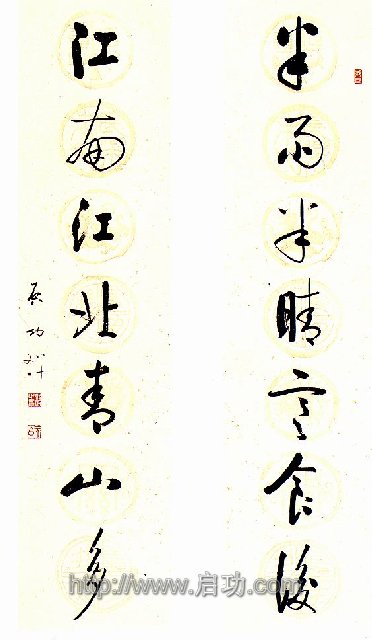 半雨半晴寒食後
江南江北青山多
启功书
http://www.启功.com